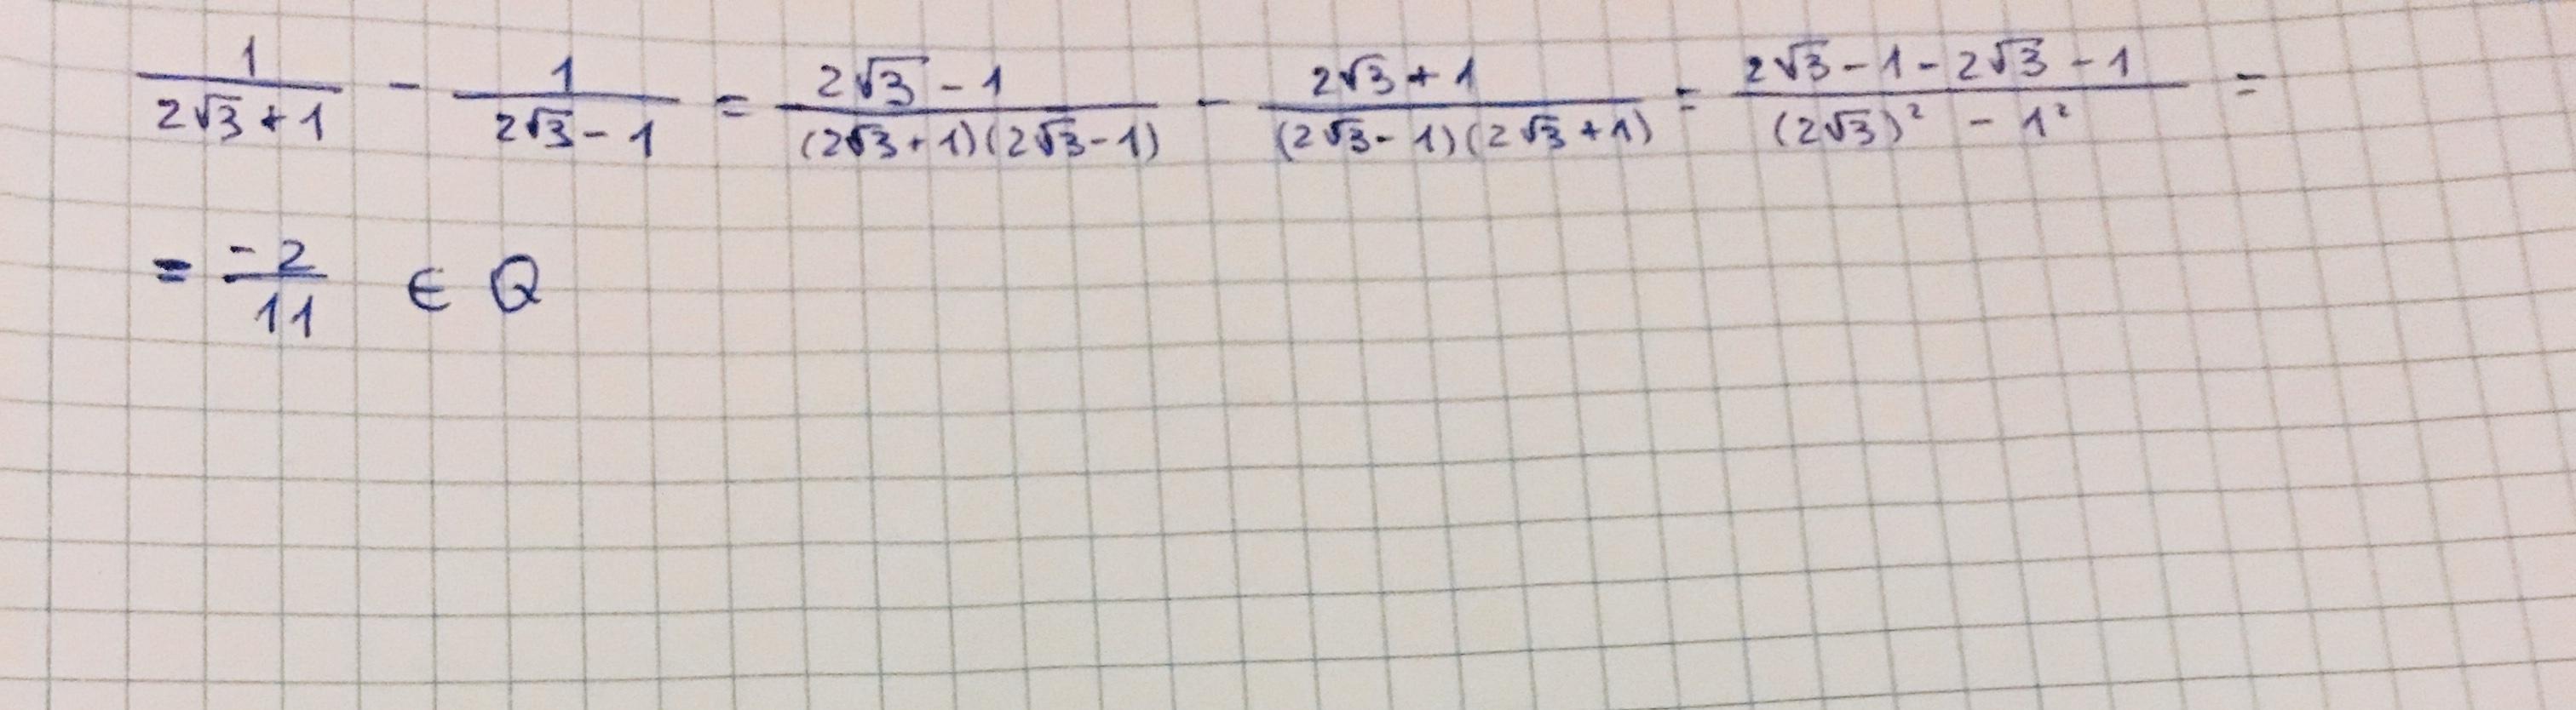 1/(2√3+1) - 1/(2√3-1) = (2√3-1)/((2√3+1)(2√3-1)) - (2√3+1)/((2√3-1)(2√3+1)) = (2√3-1-2√3-1)/((2√3)²-1²) =
= -2/11 ∈ Q